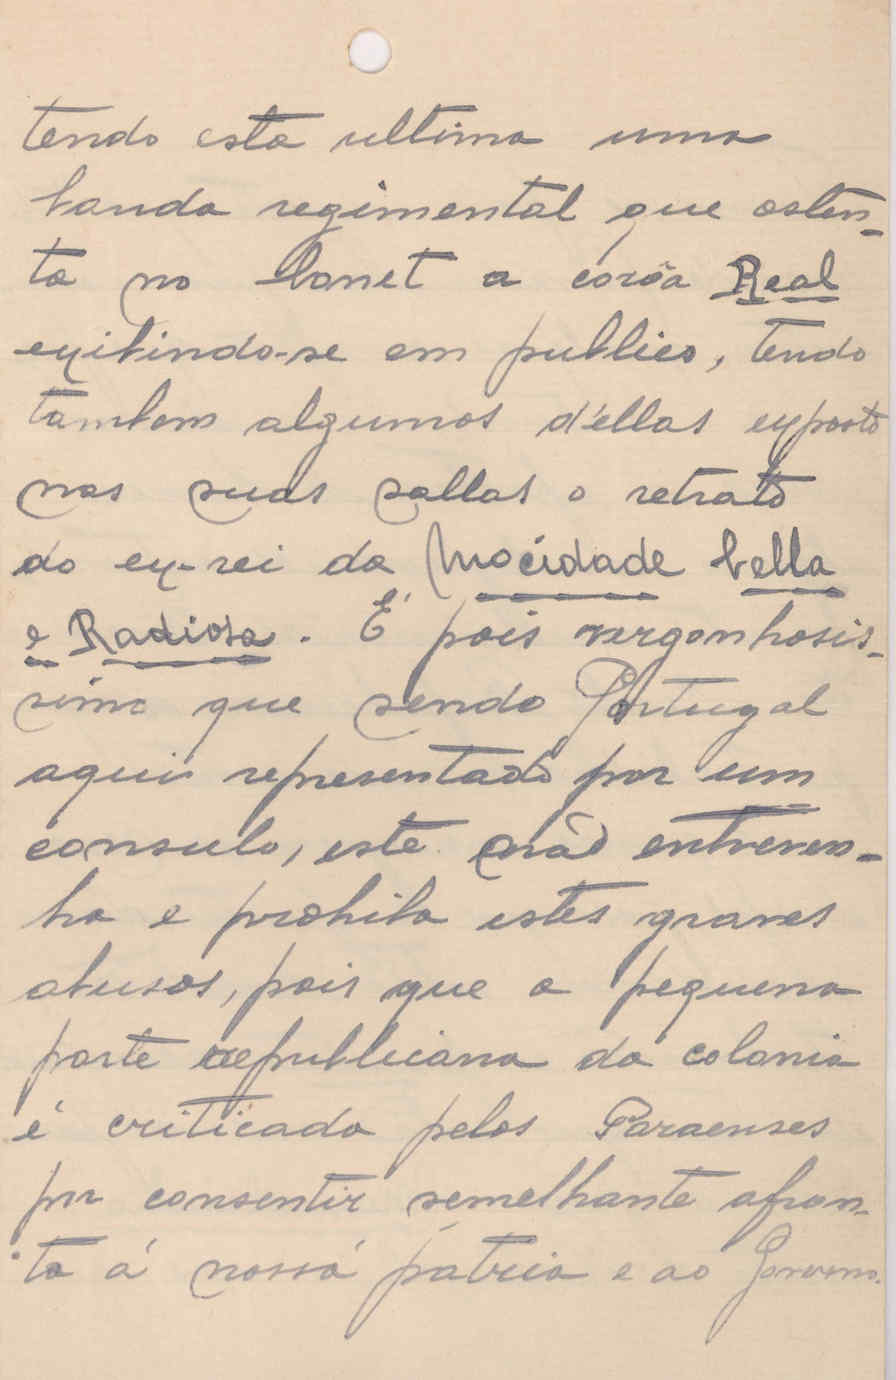 tendo esta ultima uma
banda regimental que osten-
ta no bonet a corôa Real
exibindo-se em publico, tendo
tambem algumas d'ellas exposto
nas suas sallas o retrato
do ex-rei da Mocidade bella
e Radiosa. É pois vergonhosis-
simo que sendo Portugal
aqui representado por um
consulo, este não entreven-
ha e prohiba estes graves
abusos, pois que a pequena
parte republicana da colonia
é criticada pelos Paraenses
por consentir semelhante afron-
ta á nossa pátria e ao Governo.